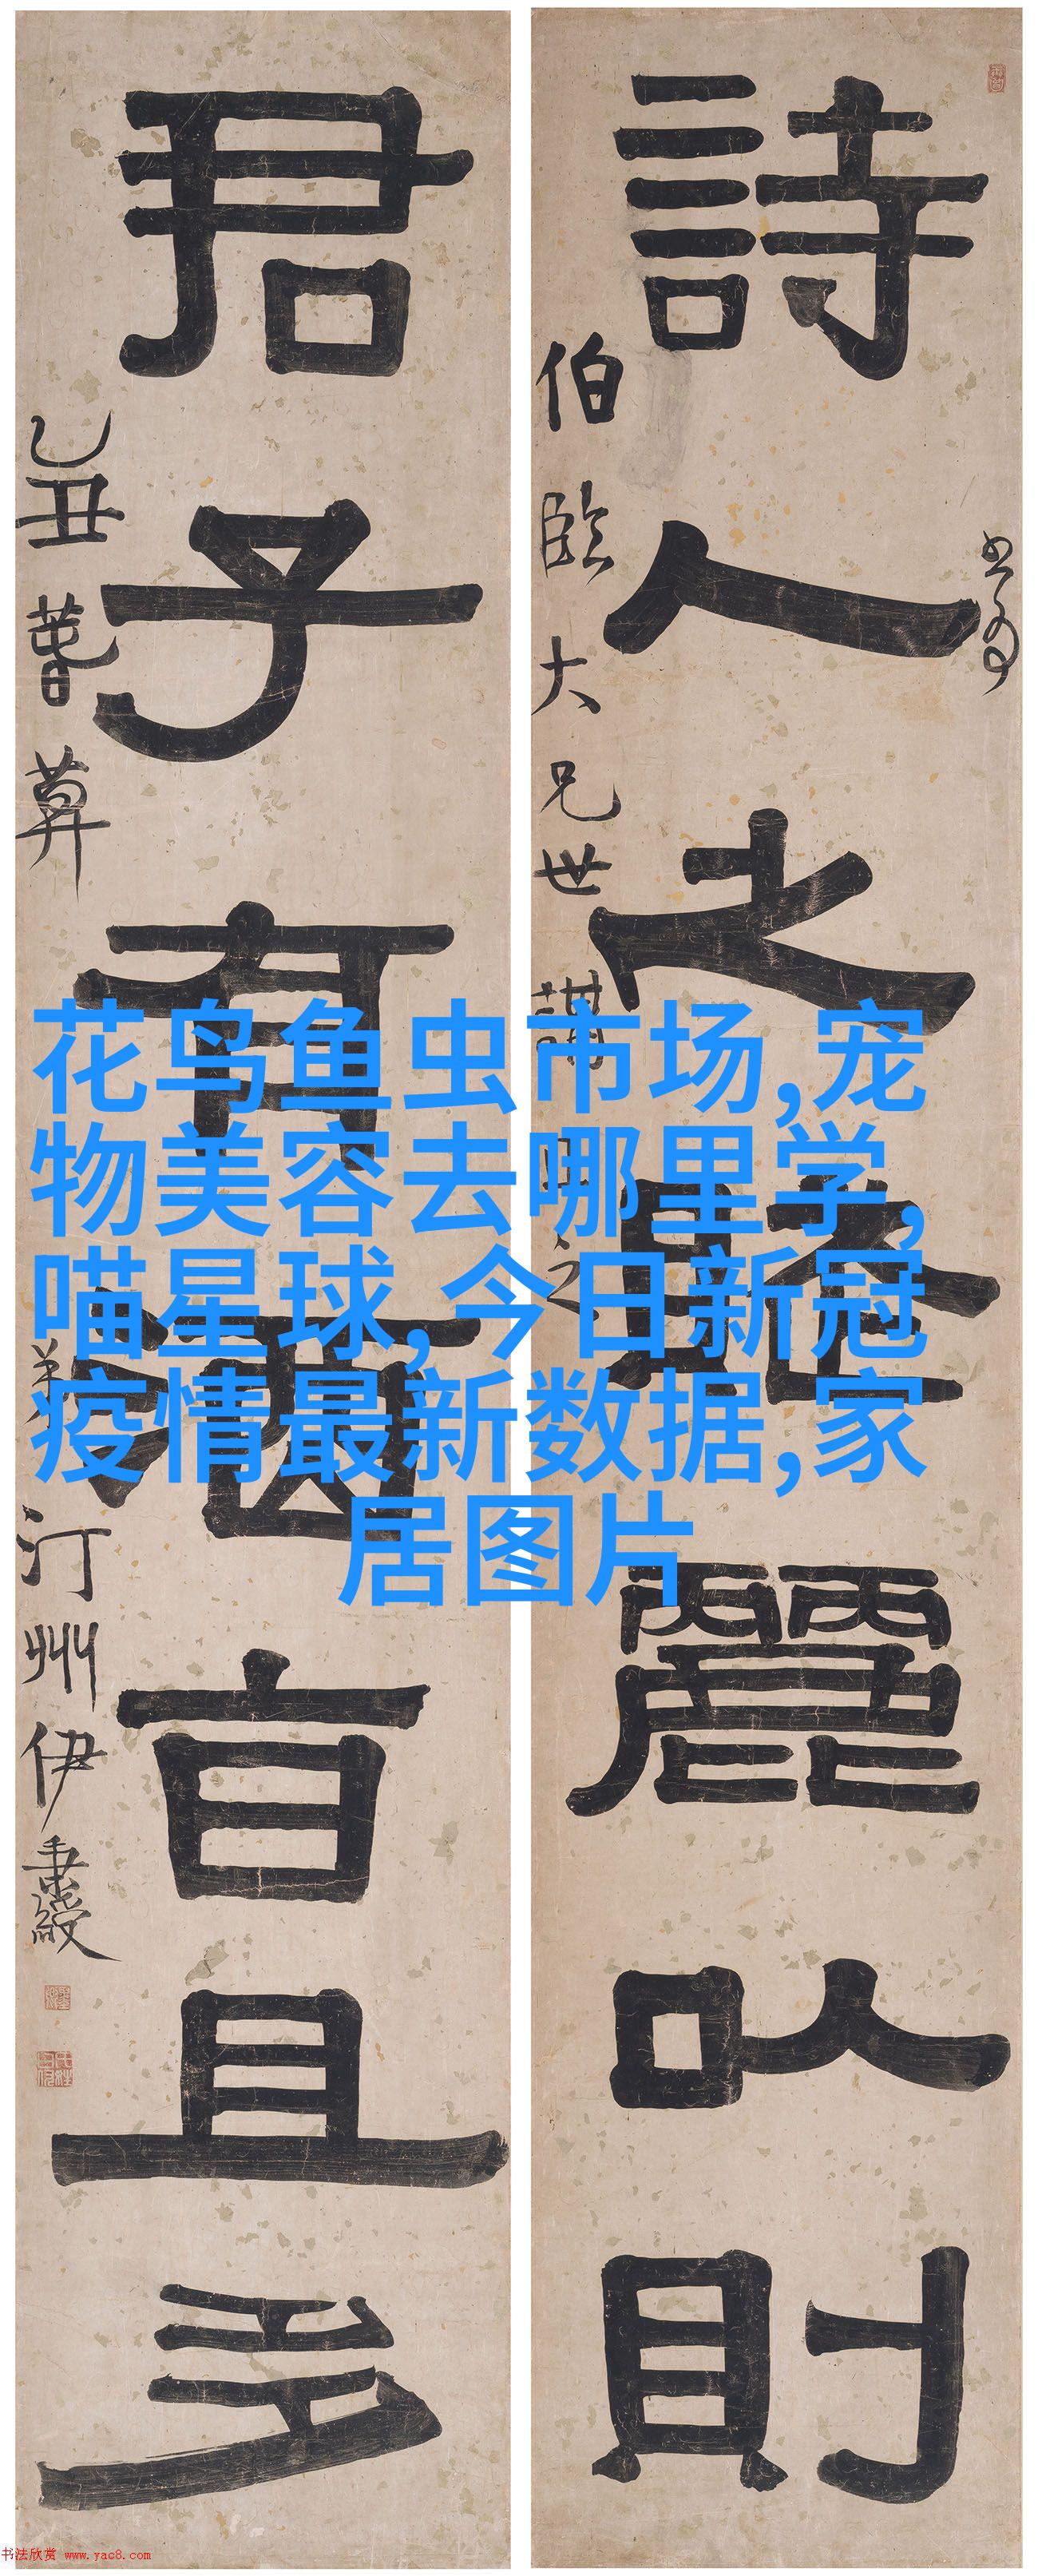 詩人之麗以則
書為
伯臨大兄世講正之
君子有酒旨且多
乙丑
弟汀州伊秉綬
花鸟鱼虫市场,宠
物美容去哪里学,
喵星球,今日新冠
疫情最新数据,家
居图片
书法欣赏 www.yac8.com